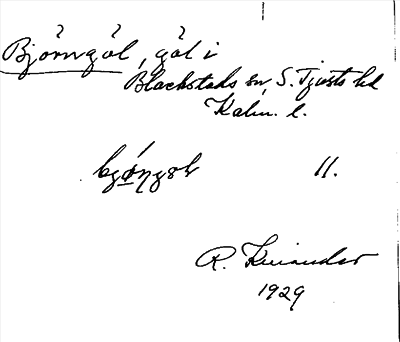 Björngöl, göl i
Blackstads sn, S. Tjusts hd
Kalm. l.
11.
R. Kinander
1929